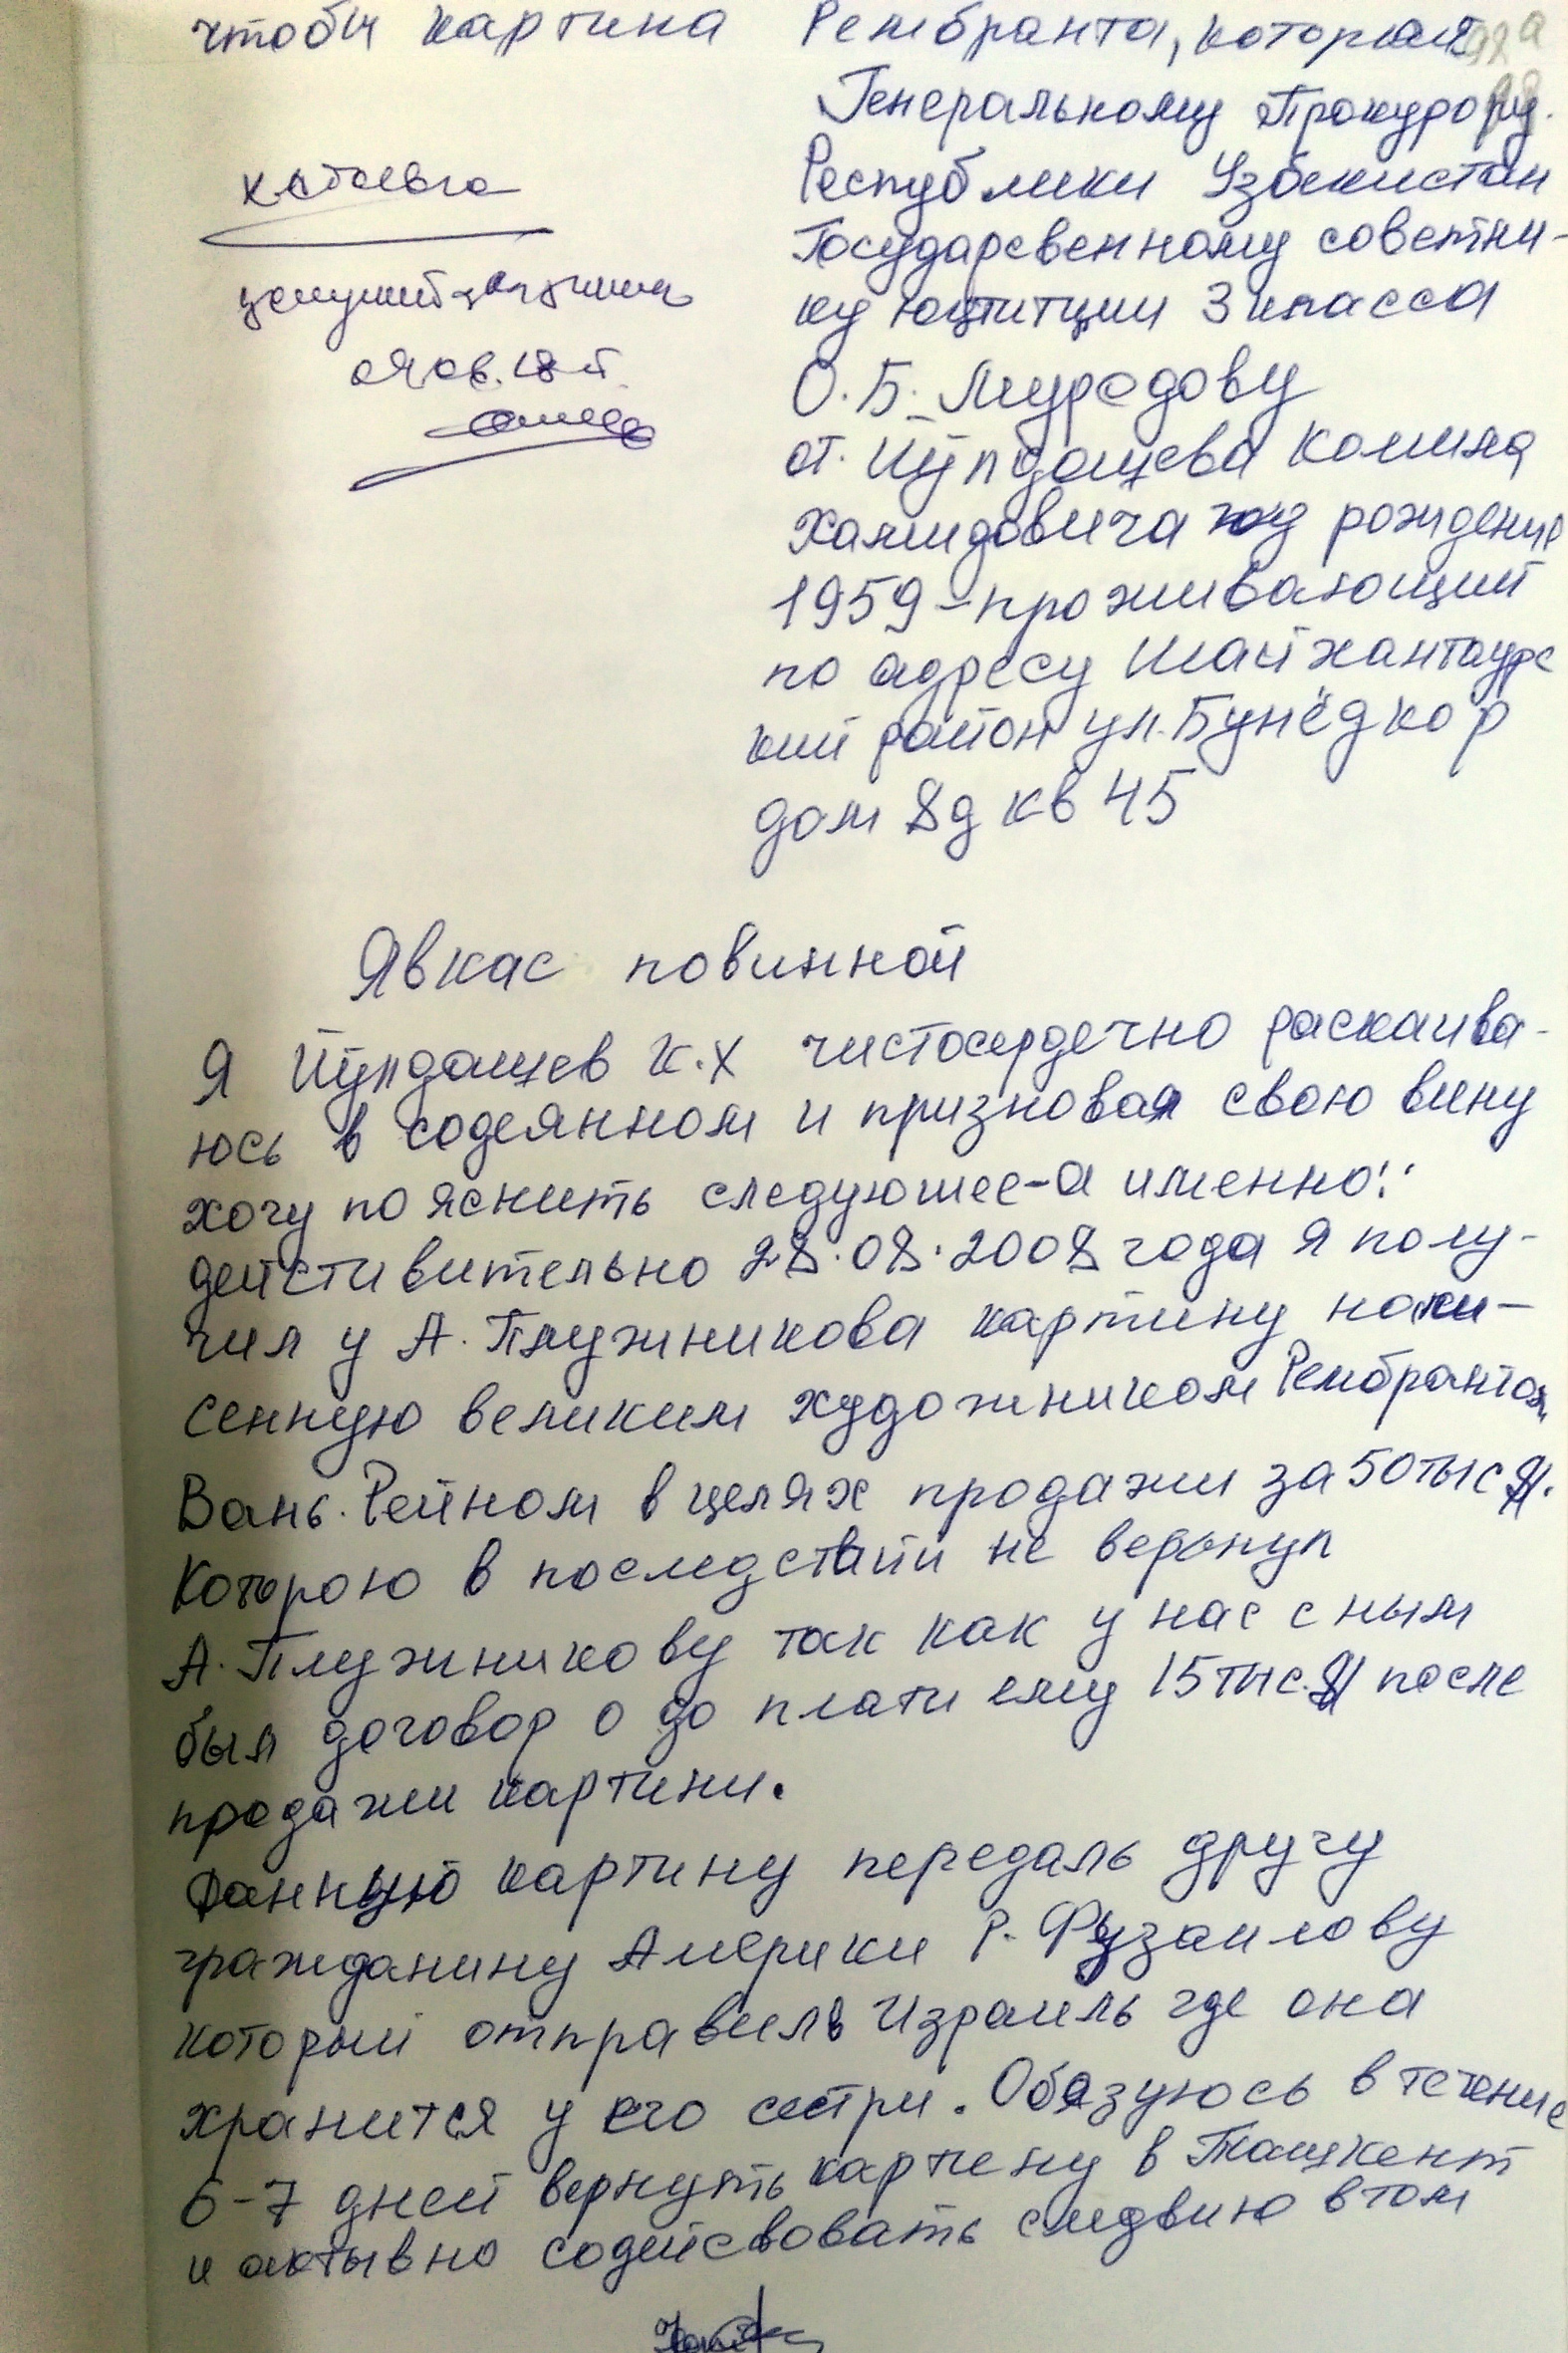 чтобы картина Рембранта, которая
Генеральному Прокурору
Республики Узбекистан
Государсвенному советни-
ку юстиции 3 класса
О.Б. Муродову
от. Йўлдошева Комила
Хамидовича год рождения
1959 - проживающий
по адресу Шайхантаурс
кий район ул. Бунёдкор
дом 8д кв 45
Явка с повинной
Я Йўлдошев К.Х чистосердечно раскаива-
юсь в содеянном и призновая свою вину
хочу пояснить следуюшее - а именно:
действительно 28.08.2008 года я полу-
чил у А. Плужникова картину напи-
сенную великим художником Рембрантом
Вань. Рейном в целях продажи за 50 тыс $.
Которою в последствии не верьнул
А. Плужникову так как у нас с ным
был договор о до плати ему 15 тыс. $ после
продажи картини.
Данную картину передаль другу
гражданину Америки Р. Фузаилову
который отправил в Израиль где она
хранится у его сестри. Обязуюсь в течение
6-7 дней вернуть картину в Ташкент
и октывно содейсвовать следвию в том